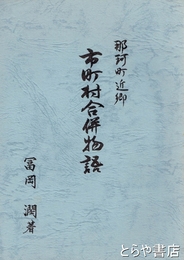 那珂町近郷
市町村合併物語
冨岡 潤著
とらや書店